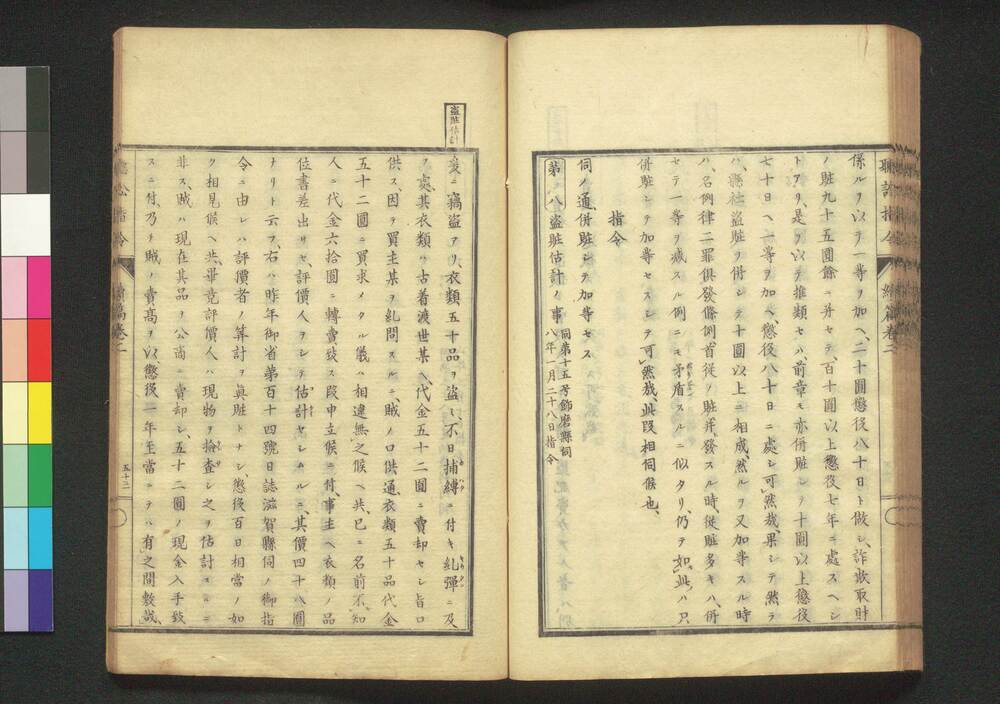 聽訟指令 續篇卷二
係ルヲ以テ一等ヲ加ヘ、二十圓懲役八十日ト做シ、詐欺取財
ノ贓九十五圓餘ニ并セテ、百十圓以上懲役七年ニ處スヘシ
トアリ、是ヲ以テ推類セハ、前章モ亦併贓シテ十圓以上懲役
七十日ヘ一等ヲ加ヘ、懲役八十日ニ處シ可然哉、果シテ然ラ
ハ、聽社盜贓ヲ併シテ十圓以上ニ相成、然ルヲ又加等スル時
ハ、名例律二罪俱發條例、首從ノ贓并發スル時、從贓多キハ、併
セテ一等ヲ減スル例ニモ矛盾スルニ似タリ、仍テ如此ハ只
併贓シテ加等セスシテ可然哉、此段相伺候也、
指令
伺ノ通、併贓シテ加等セス
第八 盜贓估計ノ事
同第十五号飾磨縣伺
八年一月二十八日指令
盜贓估計
爰ニ竊盜アリ、衣類五十品ヲ盜ミ、不日捕縛ニ付キ糺彈ニ及
フ處、其衣類ハ古着渡世某ヘ代金五十二圓ニ賣却セシ旨口
供ス、因テ買主某ヲ糺問スルニ、賊ノ口供通、衣類五十品代金
五十二圓ニ買求メタル儀ハ相違無之候ヘ共、已ニ名前不知
人ニ代金六拾圓ニ轉賣致ス段申立候ニ付、事主ヘ衣類ノ品
位書差出サセ、評價人ヲシテ估計セシムルニ、其價四十八圓
ナリト云フ、右ハ昨年御省第百十四號日誌滋賀縣伺ノ御指
令ニ由レハ評價者ノ筭計ヲ眞贓トナシ、懲役百日相當ノ如
ク相見候ヘ共、畢竟評價人ハ現物ヲ檢査シ之ヲ估計スルニ
非ス、賊ハ現在其品ヲ公商ニ賣却シ、五十二圓ノ現金入手致
スニ付、乃チ賊ノ賣高ヲ以、懲役一年至當ニテハ有之間敷哉、
五十二